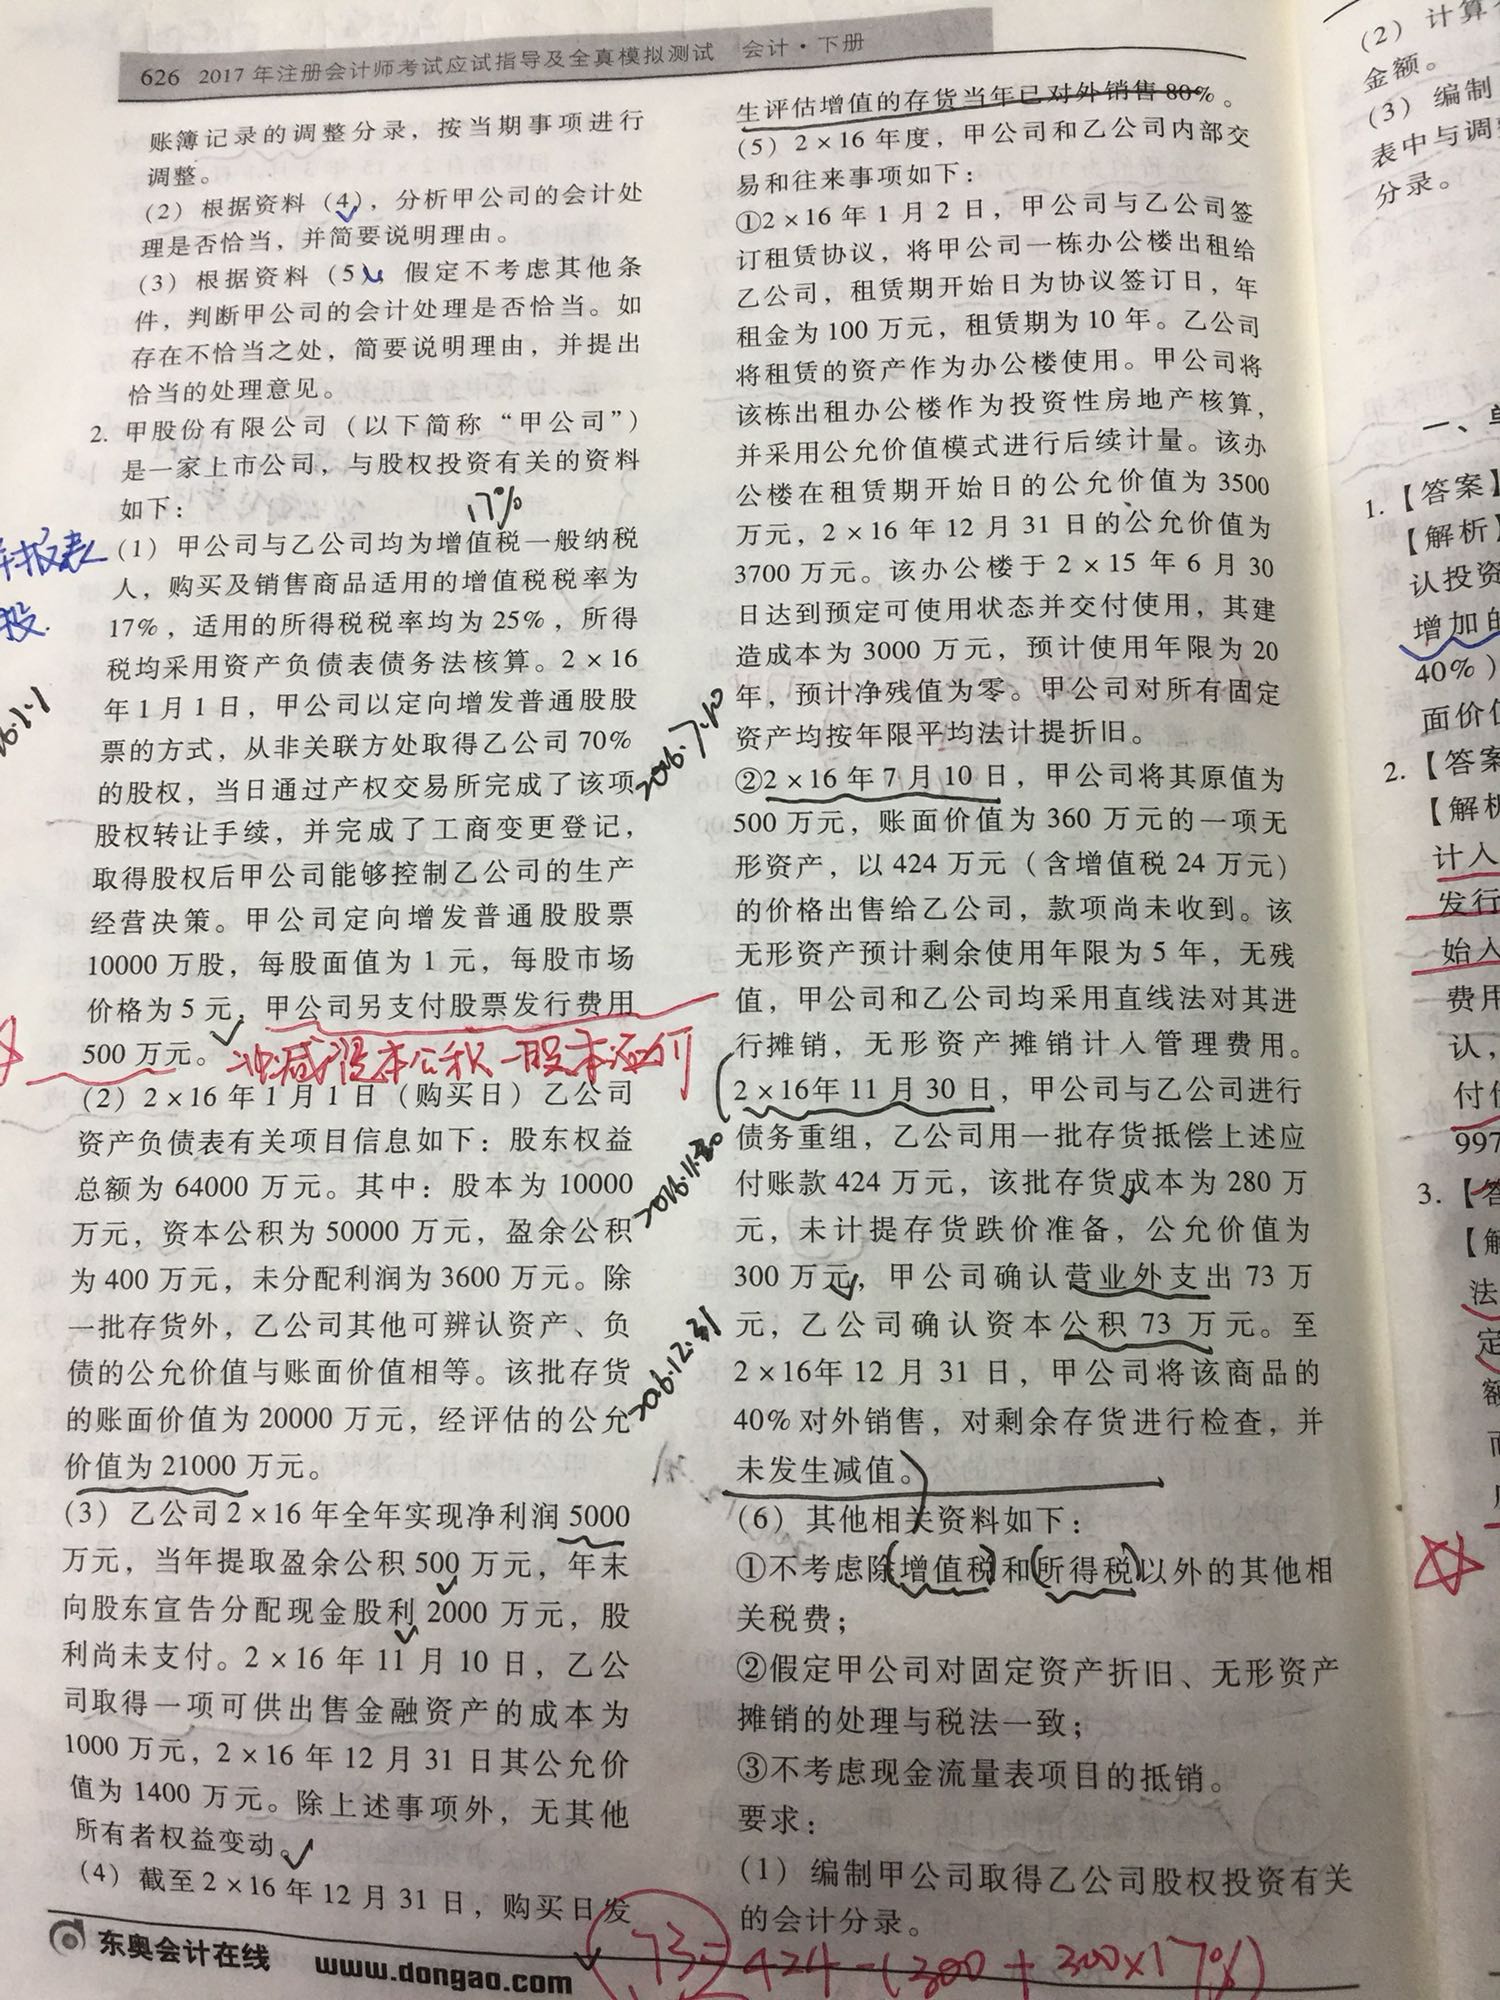 626 2017年注册会计师考试应试指导及全真模拟测试 会计·下册
账簿记录的调整分录，按当期事项进行
调整。
（2）根据资料（4），分析甲公司的会计处
理是否恰当，并简要说明理由。
（3）根据资料（5），假定不考虑其他条
件，判断甲公司的会计处理是否恰当。如
存在不恰当之处，简要说明理由，并提出
恰当的处理意见。
2. 甲股份有限公司（以下简称“甲公司”）
是一家上市公司，与股权投资有关的资料
如下：
17%
（1）甲公司与乙公司均为增值税一般纳税
人，购买及销售商品适用的增值税税率为
17%，适用的所得税税率均为25%，所得
税均采用资产负债表债务法核算。2×16
年1月1日，甲公司以定向增发普通股股
票的方式，从非关联方处取得乙公司70%
的股权，当日通过产权交易所完成了该项
股权转让手续，并完成了工商变更登记，
取得股权后甲公司能够控制乙公司的生产
经营决策。甲公司定向增发普通股股票
10000万股，每股面值为1元，每股市场
价格为5元，甲公司另支付股票发行费用
500万元。
冲减资本公积—股本溢价
（2）2×16年1月1日（购买日）乙公司
资产负债表有关项目信息如下：股东权益
总额为64000万元。其中：股本为10000
万元，资本公积为50000万元，盈余公积
为400万元，未分配利润为3600万元。除
一批存货外，乙公司其他可辨认资产、负
债的公允价值与账面价值相等。该批存货
的账面价值为20000万元，经评估的公允
价值为21000万元。
（3）乙公司2×16年全年实现净利润5000
万元，当年提取盈余公积500万元，年末
向股东宣告分配现金股利2000万元，股
利尚未支付。2×16年11月10日，乙公
司取得一项可供出售金融资产的成本为
1000万元，2×16年12月31日其公允价
值为1400万元。除上述事项外，无其他
所有者权益变动。
（4）截至2×16年12月31日，购买日发
东奥会计在线 www.dongao.com
报表
投.
生评估增值的存货当年已对外销售80%。
（5）2×16年度，甲公司和乙公司内部交
易和往来事项如下：
①2×16年1月2日，甲公司与乙公司签
订租赁协议，将甲公司一栋办公楼出租给
乙公司，租赁期开始日为协议签订日，年
租金为100万元，租赁期为10年。乙公司
将租赁的资产作为办公楼使用。甲公司将
该栋出租办公楼作为投资性房地产核算，
并采用公允价值模式进行后续计量。该办
公楼在租赁期开始日的公允价值为3500
万元，2×16年12月31日的公允价值为
3700万元。该办公楼于2×15年6月30
日达到预定可使用状态并交付使用，其建
造成本为3000万元，预计使用年限为20
年，预计净残值为零。甲公司对所有固定
资产均按年限平均法计提折旧。
2016.7.10
②2×16年7月10日，甲公司将其原值为
500万元，账面价值为360万元的一项无
形资产，以424万元（含增值税24万元）
的价格出售给乙公司，款项尚未收到。该
无形资产预计剩余使用年限为5年，无残
值，甲公司和乙公司均采用直线法对其进
行摊销，无形资产摊销计入管理费用。
2016.11.30
2×16年11月30日，甲公司与乙公司进行
债务重组，乙公司用一批存货抵偿上述应
付账款424万元，该批存货成本为280万
元，未计提存货跌价准备，公允价值为
300万元，甲公司确认营业外支出73万
元，乙公司确认资本公积73万元。至
2016.12.31
2×16年12月31日，甲公司将该商品的
40%对外销售，对剩余存货进行检查，并
未发生减值。
（6）其他相关资料如下：
①不考虑除增值税和所得税以外的其他相
关税费；
②假定甲公司对固定资产折旧、无形资产
摊销的处理与税法一致；
③不考虑现金流量表项目的抵销。
要求：
（1）编制甲公司取得乙公司股权投资有关
的会计分录。
73=424-(300+300×17%)
（2）计算
金额。
（3）编制
表中与调
分录。
一、
1.【答案】
【解析】
认投资
增加的
40%）
面价值
2.【答案
【解析
计入
发行
始入
费用
认，
付
997
3.【答
【解
法
定
额
而